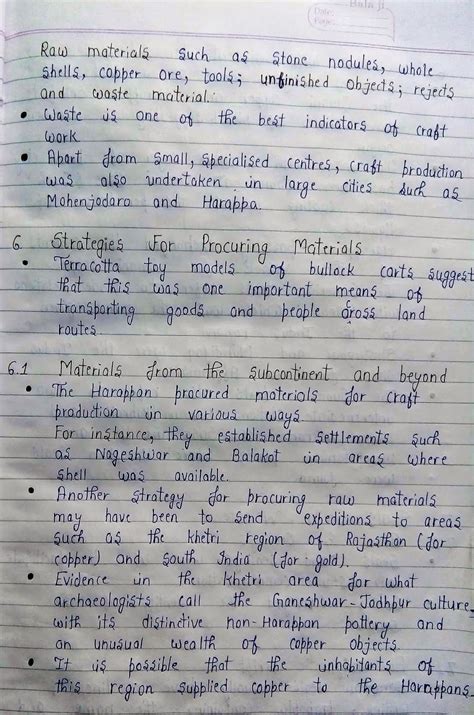 Bala Ji
Date:
Page:
Raw materials such as stone nodules, whole
shells, copper ore, tools; unfinished objects; rejects
and waste material.
• Waste is one of the best indicators of craft
work
• Apart from small, specialised centres, craft production
was also undertaken in large cities such as
Mohenjodaro and Harappa.
6 Strategies For Procuring Materials
• Terracotta toy models of bullock carts suggest
that this was one important means of
transporting goods and people across land
routes.
6.1 Materials from the subcontinent and beyond
• The Harappan procured materials for craft
production in various ways.
For instance, they established settlements such
as Nageshwar and Balakot in areas where
shell was available.
• Another strategy for procuring raw materials
may have been to send expeditions to areas
such as the khetri region of Rajasthan (for
copper) and South India (for gold).
• Evidence in the khetri area for what
archaeologists call the Ganeshwar-Jodhpur culture,
with its distinctive non-Harappan pottery and
an unusual wealth of copper objects.
• It is possible that the inhabitants of
this region supplied copper to the Harappans.